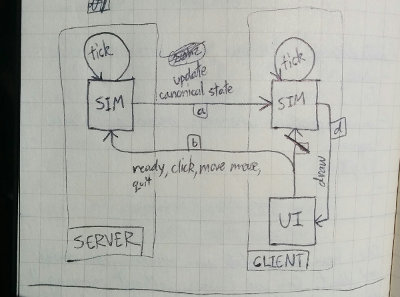 tick
tick
update
canonical state
SIM
SIM
a
d
b
ready, click, move move,
quit
draw
UI
SERVER
CLIENT